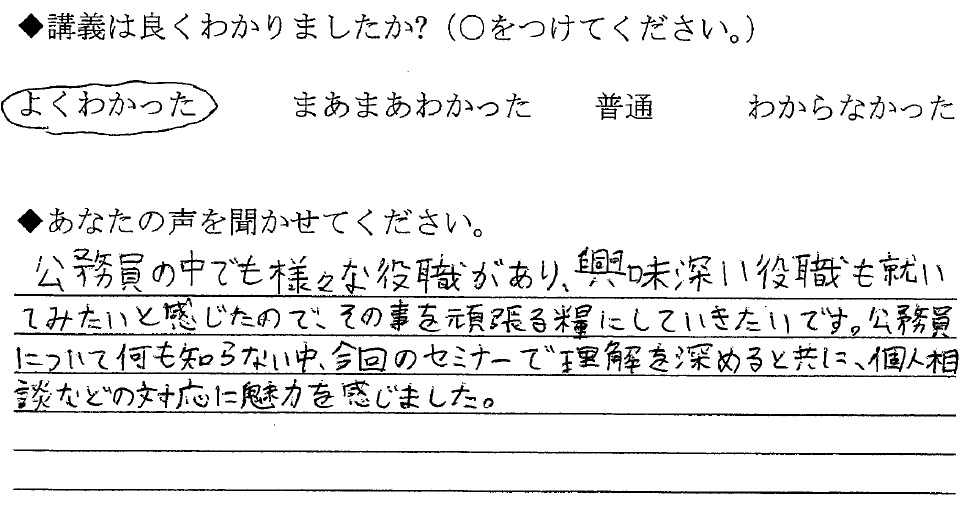 ◆講義は良くわかりましたか?（○をつけてください。）
よくわかった　まあまあわかった　普通　わからなかった
◆あなたの声を聞かせてください。
公務員の中でも様々な役職があり、興味深い役職も就い
てみたいと感じたので、その事を頑張る糧にしていきたいです。公務員
について何も知らない中、今回のセミナーで理解を深めると共に、個人相
談などの対応に魅力を感じました。